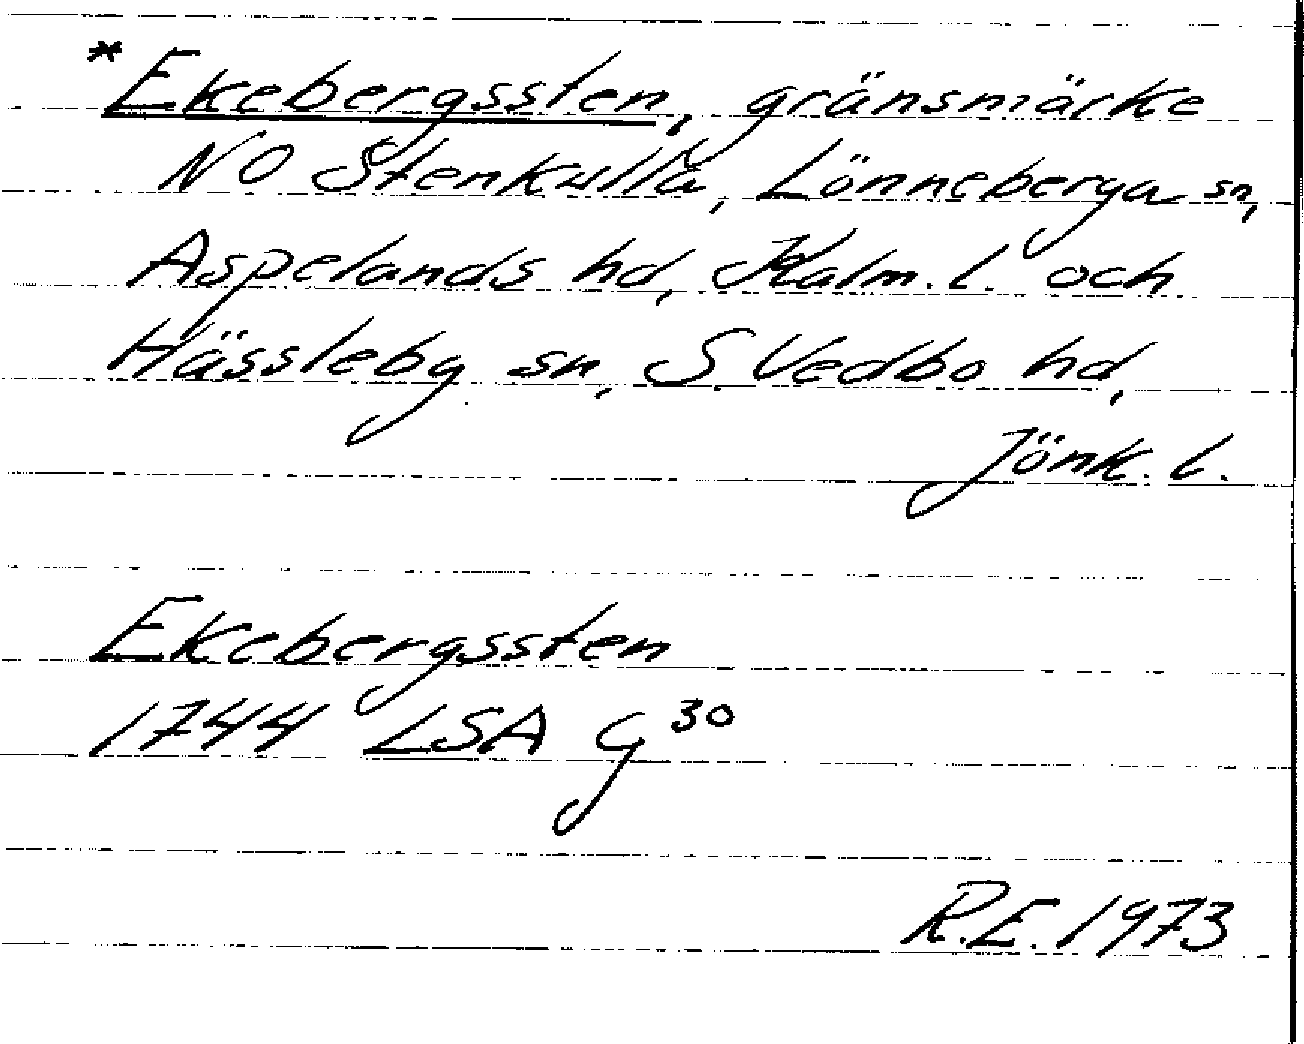 *Ekebergssten, gränsmärke
NO Stenkulla, Lönneberga sn,
Aspelands hd, Kalm. l. och
Hässleby sn, S Vedbo hd,
Jönk. l.
Ekebergssten
1744 LSA G³⁰
R.E. 1973